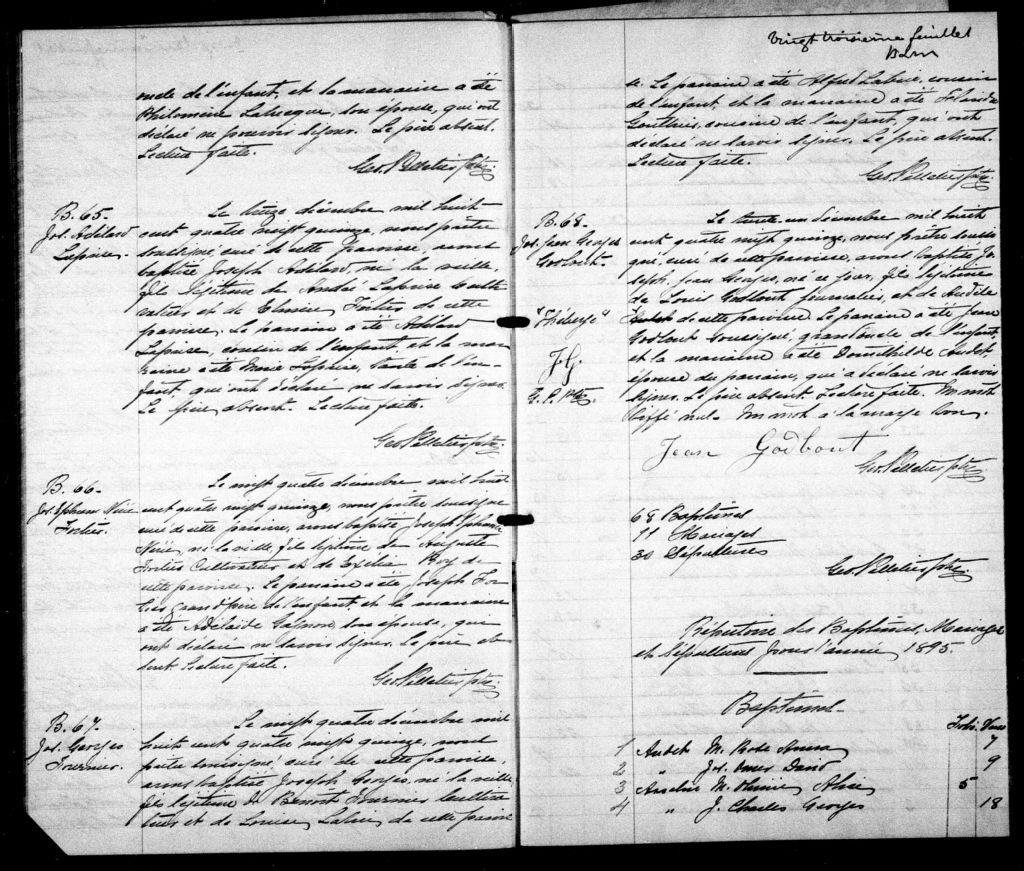 oncle de l'enfant, et la marraine a été
Philomène Labrecque, son épouse, qui ont
déclaré ne pouvoir signer. Le père absent.
Lecture faite.
Geo. Pelletier ptre
B. 65.
Jos. Adélard
Laprise.
Le treize décembre mil huit
cent quatre vingt quinze, nous prêtre
soussigné curé de cette paroisse avons
baptisé Joseph Adélard, né la veille,
fils légitime de André Laprise Culti
vateur et de Elmina Fortier de cette
paroisse. Le parrain a été Adélard
Laprise, cousin de l'enfant et la mar
raine a été Marie Laprise, tante de l'en
fant, qui ont déclaré ne savoir signer.
Le père absent. Lecture faite.
Geo. Pelletier ptre
B. 66.
Jos. Ephrem
Fortier.
Le vingt quatre décembre mil huit
cent quatre vingt quinze, nous prêtre soussigné
curé de cette paroisse, avons baptisé Joseph Ephrem
né la veille, fils légitime de Auguste
Fortier Cultivateur et de Roy de
cette paroisse. Le parrain a été Joseph For
tier grand père de l'enfant et la marraine
a été Adélaïde Gagnon son épouse, qui
ont déclaré ne savoir signer. Le père ab
sent. Lecture faite.
Geo. Pelletier ptre
B. 67.
Jos. Georges
Fournier.
Le vingt quatre décembre mil
huit cent quatre vingt quinze, nous
prêtre soussigné curé de cette paroisse,
avons baptisé Joseph Georges, né la veille
fils légitime de Benoit Fournier Cultiva
teur et de Louise Labrie de cette parois
Vingt troisième feuillet
se. Le parrain a été Alfred Labrie, cousin
de l'enfant et la marraine a été
Gonthier, cousine de l'enfant, qui ont
déclaré ne savoir signer. Le père absent.
Lecture faite.
Geo. Pelletier ptre
B. 68.
Jos. Jean Georges
Godbout.
"Théberge"
J G.
G. P. Ptre.
Le trente un décembre mil huit
cent quatre vingt quinze, nous prêtre soussi
gné, curé de cette paroisse, avons baptisé Jo
seph, Jean Georges, né ce jour, fils légitime
de Louis Godbout journalier, et de Audélie
Audet de cette paroisse. Le parrain a été Jean
Godbout soussigné, grand oncle de l'enfant
et la marraine a été Domithilde Audet,
épouse du parrain, qui a déclaré ne savoir
signer. Le père absent. Lecture faite. Un mot
biffé nul. Un mot à la marge bon.
Jean Godbout
Geo. Pelletier ptre
68 Baptêmes
11 Mariages
30 Sépultures
Geo. Pelletier ptre.
Répertoire des Baptêmes, Mariage
et Sépultures pour l'année 1895.
Baptêmes
Folio. Verso
1 Audet M. Rose Anna 7
2 " Jos. Omer David 9
3 Anselme M. Olivine Alice 5
4 " J. Charles Georges 18